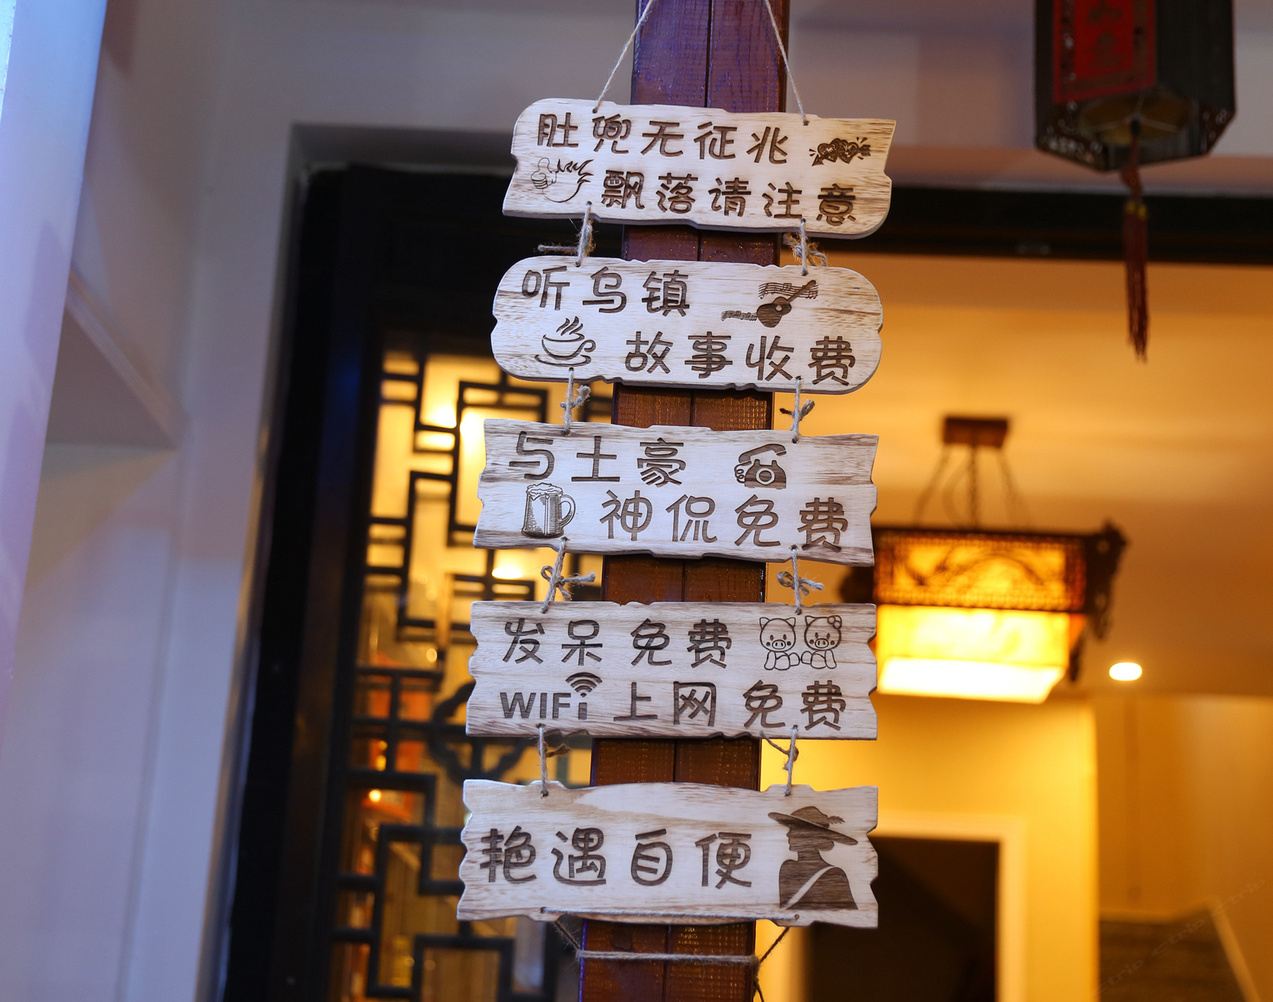 肚兜无征兆
飘落请注意
听乌镇
故事收费
与土豪
神侃免费
发呆免费
WiFi上网免费
艳遇自便